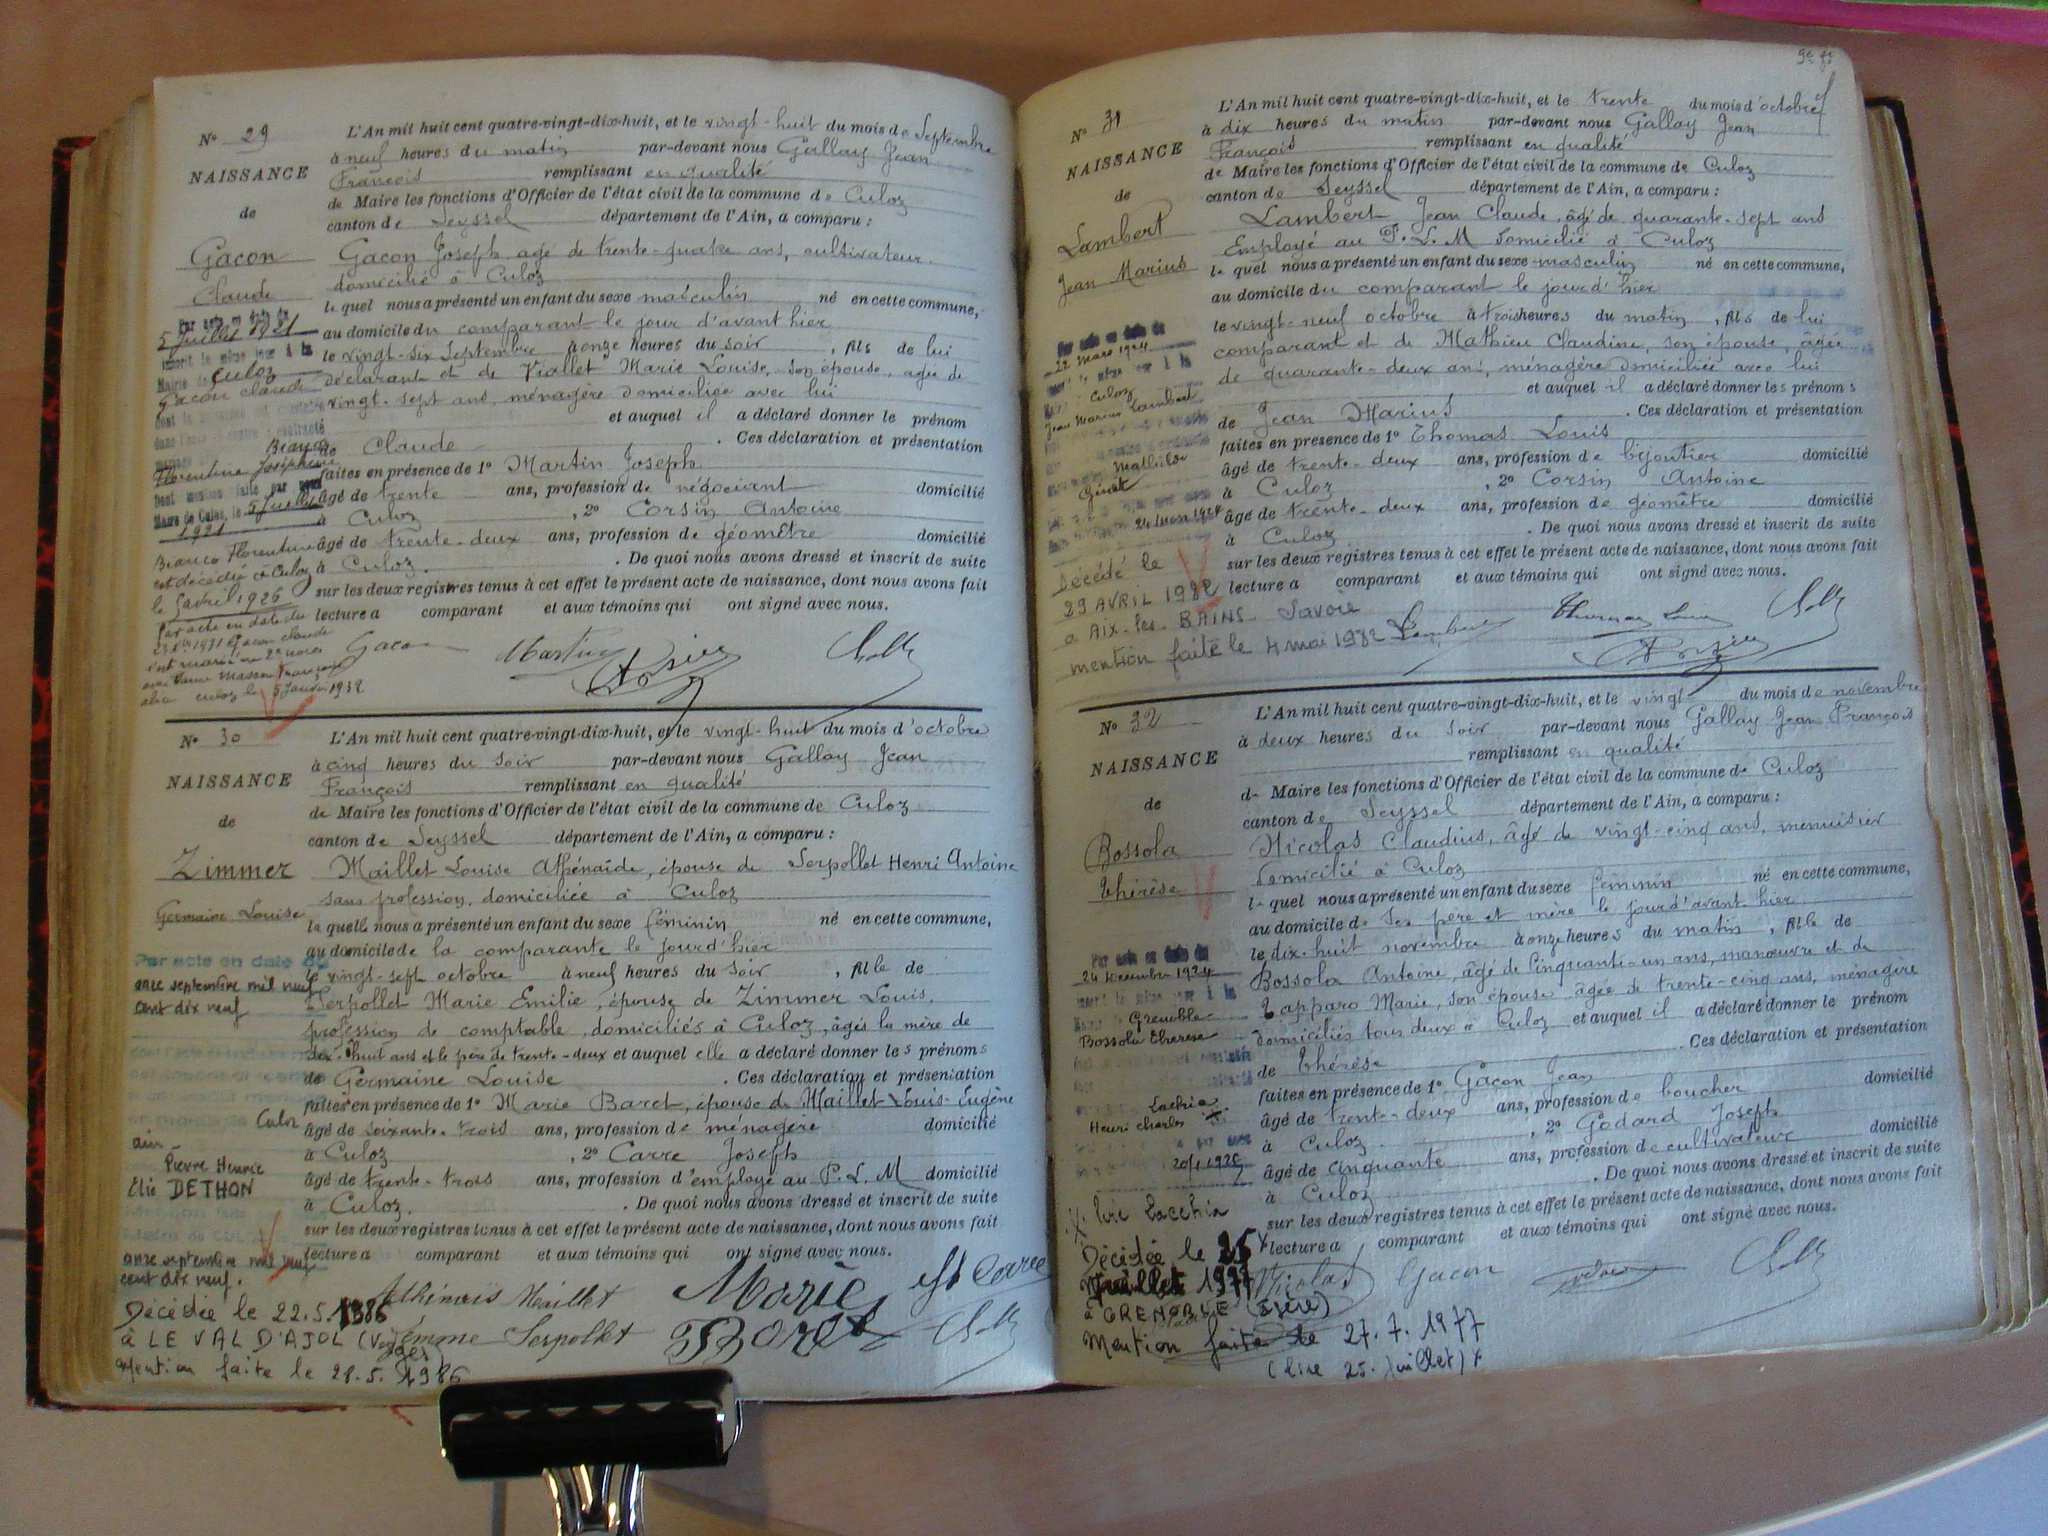 Nº 29
NAISSANCE
de
Gacon
Claude
L'An mil huit cent quatre-vingt-dix-huit, et le vingt-huit du mois de Septembre
à neuf heures du matin par-devant nous Gallay Jean
François remplissant en qualité
de Maire les fonctions d'Officier de l'état civil de la commune de Culoz
canton de Seyssel département de l'Ain, a comparu :
Gacon Joseph agé de trente-quatre ans, cultivateur
domicilié à Culoz
le quel nous a présenté un enfant du sexe masculin né en cette commune,
au domicile du comparant le jour d'avant hier
le vingt-six Septembre à onze heures du soir, fils de lui
déclarant et de Viallet Marie Louise, son épouse, agée de
vingt-sept ans, ménagère domiciliée avec lui
et auquel il a déclaré donner le prénom
de Claude. Ces déclaration et présentation
faites en présence de 1º Martin Joseph
âgé de trente ans, profession de négociant domicilié
à Culoz, 2º Corsin Antoine
âgé de trente-deux ans, profession de géomètre domicilié
à Culoz. De quoi nous avons dressé et inscrit de suite
sur les deux registres tenus à cet effet le présent acte de naissance, dont nous avons fait
lecture a comparant et aux témoins qui ont signé avec nous.
Par acte en date du
5 Juillet 1921
inscrit le même jour à la
Mairie de Culoz
Gacon Claude
Florentine Joséphine
Dont mention faite par nous
Maire de Culoz, le 5 Juillet
1921
Bianco Florentine
est décédée à Culoz
le 5 avril 1926
Par acte en date du
1931 Gacon Claude
s'est marié en 2es noces
Culoz le 5 Janvier 1932
Gacon Martin
Nº 30
NAISSANCE
de
Zimmer
Germaine Louise
L'An mil huit cent quatre-vingt-dix-huit, et le vingt-huit du mois d'octobre
à cinq heures du soir par-devant nous Gallay Jean
François remplissant en qualité
de Maire les fonctions d'Officier de l'état civil de la commune de Culoz
canton de Seyssel département de l'Ain, a comparu :
Maillet Louise Athénaïde, épouse de Serpollet Henri Antoine
sans profession, domiciliée à Culoz
la quelle nous a présenté un enfant du sexe féminin né en cette commune,
au domicile de la comparante le jour d'hier
le vingt-sept octobre à neuf heures du soir, fille de
Serpollet Marie Emilie, épouse de Zimmer Louis,
profession de comptable, domiciliés à Culoz, âgés la mère de
dix-huit ans et le père de trente-deux et auquel elle a déclaré donner les prénoms
de Germaine Louise. Ces déclaration et présentation
faites en présence de 1º Marie Baret, épouse de Maillet Louis-Eugène
âgé de soixante-trois ans, profession de ménagère domicilié
à Culoz, 2º Carre Joseph
âgé de trente-trois ans, profession d'employé au P. L. M domicilié
à Culoz. De quoi nous avons dressé et inscrit de suite
sur les deux registres tenus à cet effet le présent acte de naissance, dont nous avons fait
lecture a comparant et aux témoins qui ont signé avec nous.
Par acte en date du
onze septembre mil neuf
cent dix neuf
Culoz
ain
Pierre Henri
Élie DETHON
onze septembre mil neuf
cent dix neuf.
Décédée le 22.5.1986
à LE VAL D'AJOL (Vosges)
Mention faite le 28.5.1986
Maillet Marie Carre
Serpollet Baret
Nº 31
NAISSANCE
de
Lambert
Jean Marius
L'An mil huit cent quatre-vingt-dix-huit, et le trente du mois d'octobre
à dix heures du matin par-devant nous Gallay Jean
François remplissant en qualité
de Maire les fonctions d'Officier de l'état civil de la commune de Culoz
canton de Seyssel département de l'Ain, a comparu :
Lambert Jean Claude, âgé de quarante-sept ans
Employé au P. L. M domicilié à Culoz
le quel nous a présenté un enfant du sexe masculin né en cette commune,
au domicile du comparant le jour d'hier
le vingt-neuf octobre à trois heures du matin, fils de lui
comparant et de Mathieu Claudine, son épouse, âgée
de quarante-deux ans, ménagère domiciliée avec lui
et auquel il a déclaré donner les prénoms
de Jean Marius. Ces déclaration et présentation
faites en présence de 1º Thomas Louis
âgé de trente-deux ans, profession de bijoutier domicilié
à Culoz, 2º Corsin Antoine
âgé de trente-deux ans, profession de géomètre domicilié
à Culoz. De quoi nous avons dressé et inscrit de suite
sur les deux registres tenus à cet effet le présent acte de naissance, dont nous avons fait
lecture a comparant et aux témoins qui ont signé avec nous.
Par acte en date du
22 Mars 1924
Culoz
Jean Marius Lambert
Mathilde
24 Mars 1924
Décédé le
29 AVRIL 1982
à AIX-les-BAINS Savoie
mention faite le 4 mai 1982
Lambert
Nº 32
NAISSANCE
de
Bossola
Thérèse
L'An mil huit cent quatre-vingt-dix-huit, et le vingt du mois de novembre
à deux heures du soir par-devant nous Gallay Jean François
remplissant en qualité
de Maire les fonctions d'Officier de l'état civil de la commune de Culoz
canton de Seyssel département de l'Ain, a comparu :
Nicolas Claudius, âgé de vingt-cinq ans, menuisier
domicilié à Culoz
le quel nous a présenté un enfant du sexe féminin né en cette commune,
au domicile de ses père et mère le jour d'avant hier
le dix-huit novembre à onze heures du matin, fille de
Bossola Antoine, âgé de Cinquante-un ans, manœuvre et de
Tapparo Marie, son épouse âgée de trente-cinq ans, ménagère
domiciliés tous deux à Culoz et auquel il a déclaré donner le prénom
de Thérèse. Ces déclaration et présentation
faites en présence de 1º Gacon Jean
âgé de trente-deux ans, profession de boucher domicilié
à Culoz, 2º Godard Joseph
âgé de cinquante ans, profession de cultivateur domicilié
à Culoz. De quoi nous avons dressé et inscrit de suite
sur les deux registres tenus à cet effet le présent acte de naissance, dont nous avons fait
lecture a comparant et aux témoins qui ont signé avec nous.
Par acte en date du
24 décembre 1924
Grenoble
Bossola Thérèse
Henri Charles
lire Lacchia
Décédée le 25
Juillet 1977
à GRENOBLE (Isère)
Mention faite le 27.7.1977
(lire 25. Juillet)
Nicolas Gacon